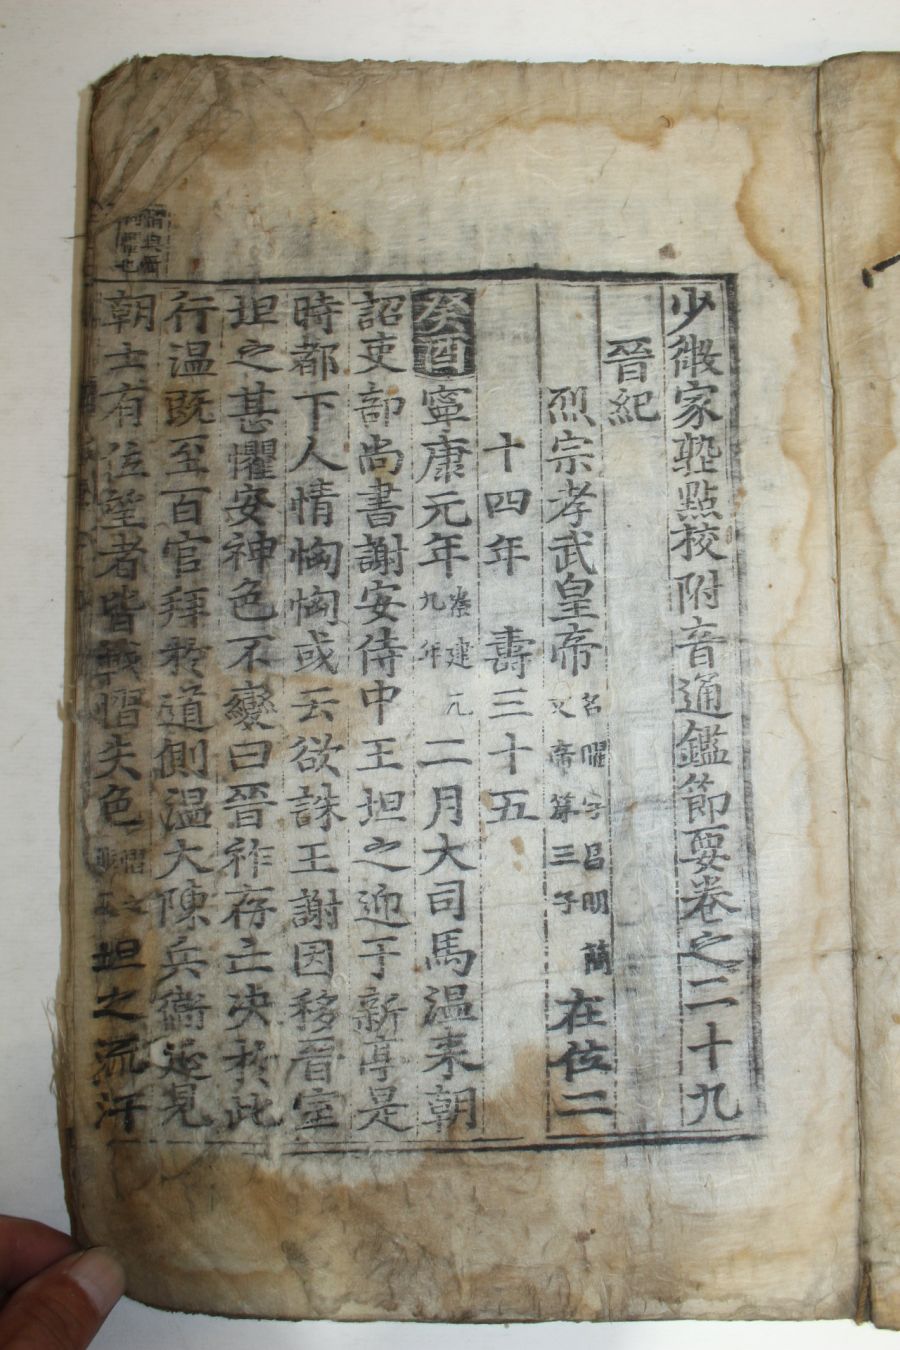 少微家塾點校附音通鑑節要卷之二十九
晉紀
烈宗孝武皇帝 名曜字昌明簡文帝第三子 在位二
十四年 壽三十五
癸酉 寧康元年 秦建元九年 二月大司馬温來朝
詔吏部尚書謝安侍中王坦之迎于新亭是
時都下人情恟恟或云欲誅王謝因移晉室
坦之甚懼安神色不變曰晉祚存亡決於此
行温既至百官拜於道側温大陳兵衛延見
朝士有位望者皆戰慴失色 坦之流汗